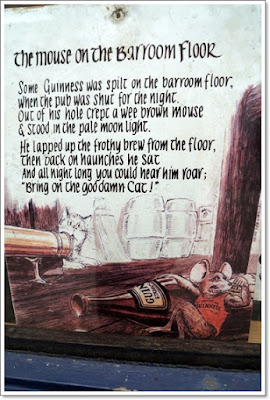 The Mouse on the Barroom Floor
Some Guinness was spilt on the barroom floor,
when the pub was shut for the night.
Out of his hole crept a wee brown mouse
& stood in the pale moon light.
He lapped up the frothy brew from the floor,
Then back on haunches he sat
And all night long you could hear him roar;
"Bring on the goddamn Cat!"